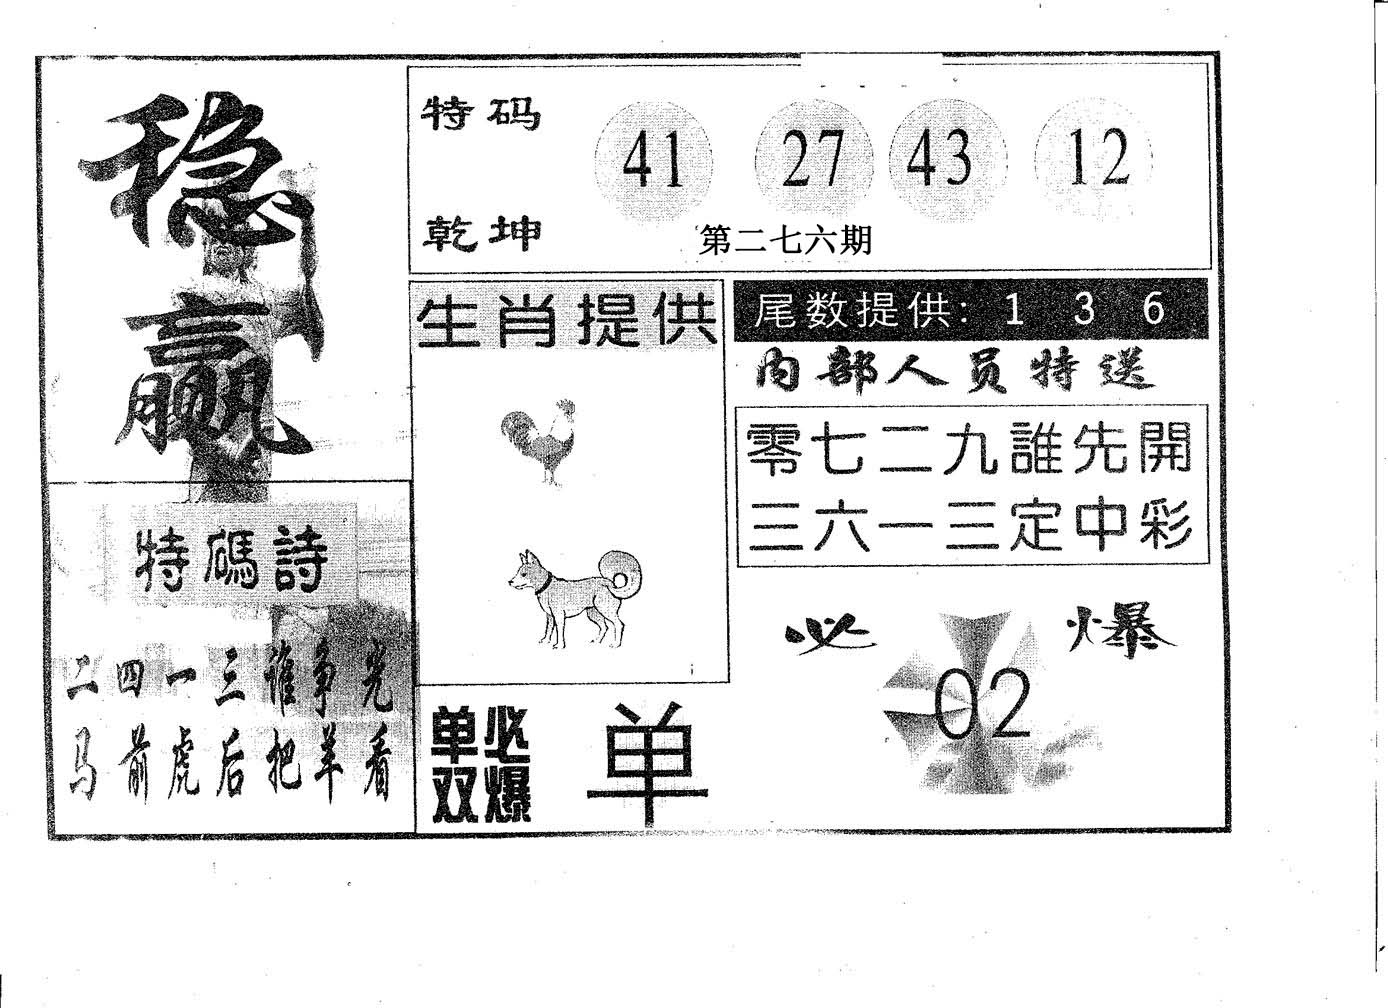 稳赢
特码 41 27 43 12
乾坤 第二七六期
生肖提供
尾数提供: 1 3 6
内部人员特送
零七二九誰先開
三六一三定中彩
特碼詩
二四一三谁争光
马前虎后把羊看
单双必爆 单
必爆 02